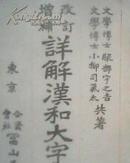 文學博士 服部宇之吉
文學博士 小柳司氣太 共著
改訂增補
詳解漢和大字
東京
合資會社 冨山